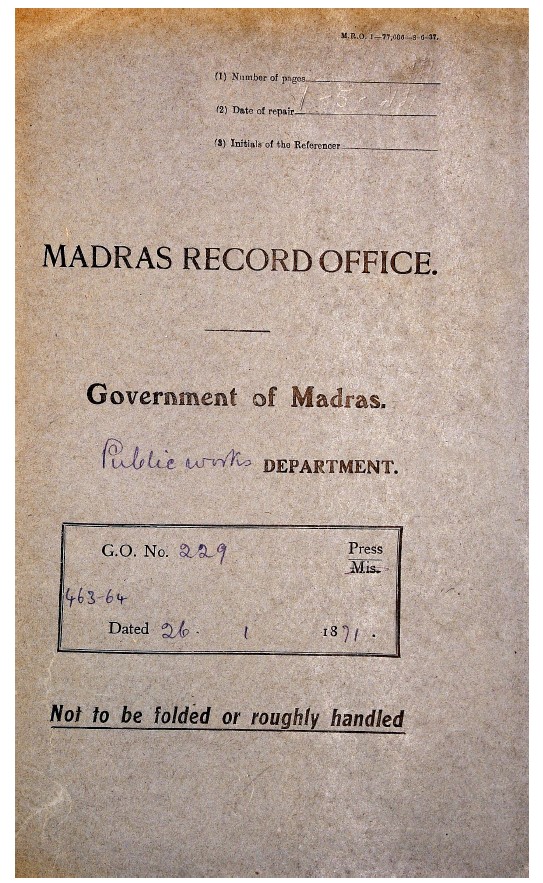 M.R.O. 1—77,606—8-6-37.
(1) Number of pages
(2) Date of repair
(3) Initials of the Referencer
MADRAS RECORD OFFICE.
Government of Madras.
Public works DEPARTMENT.
G.O. No. 229 Press
Mis.
463-64
Dated 26. 1 1871.
Not to be folded or roughly handled